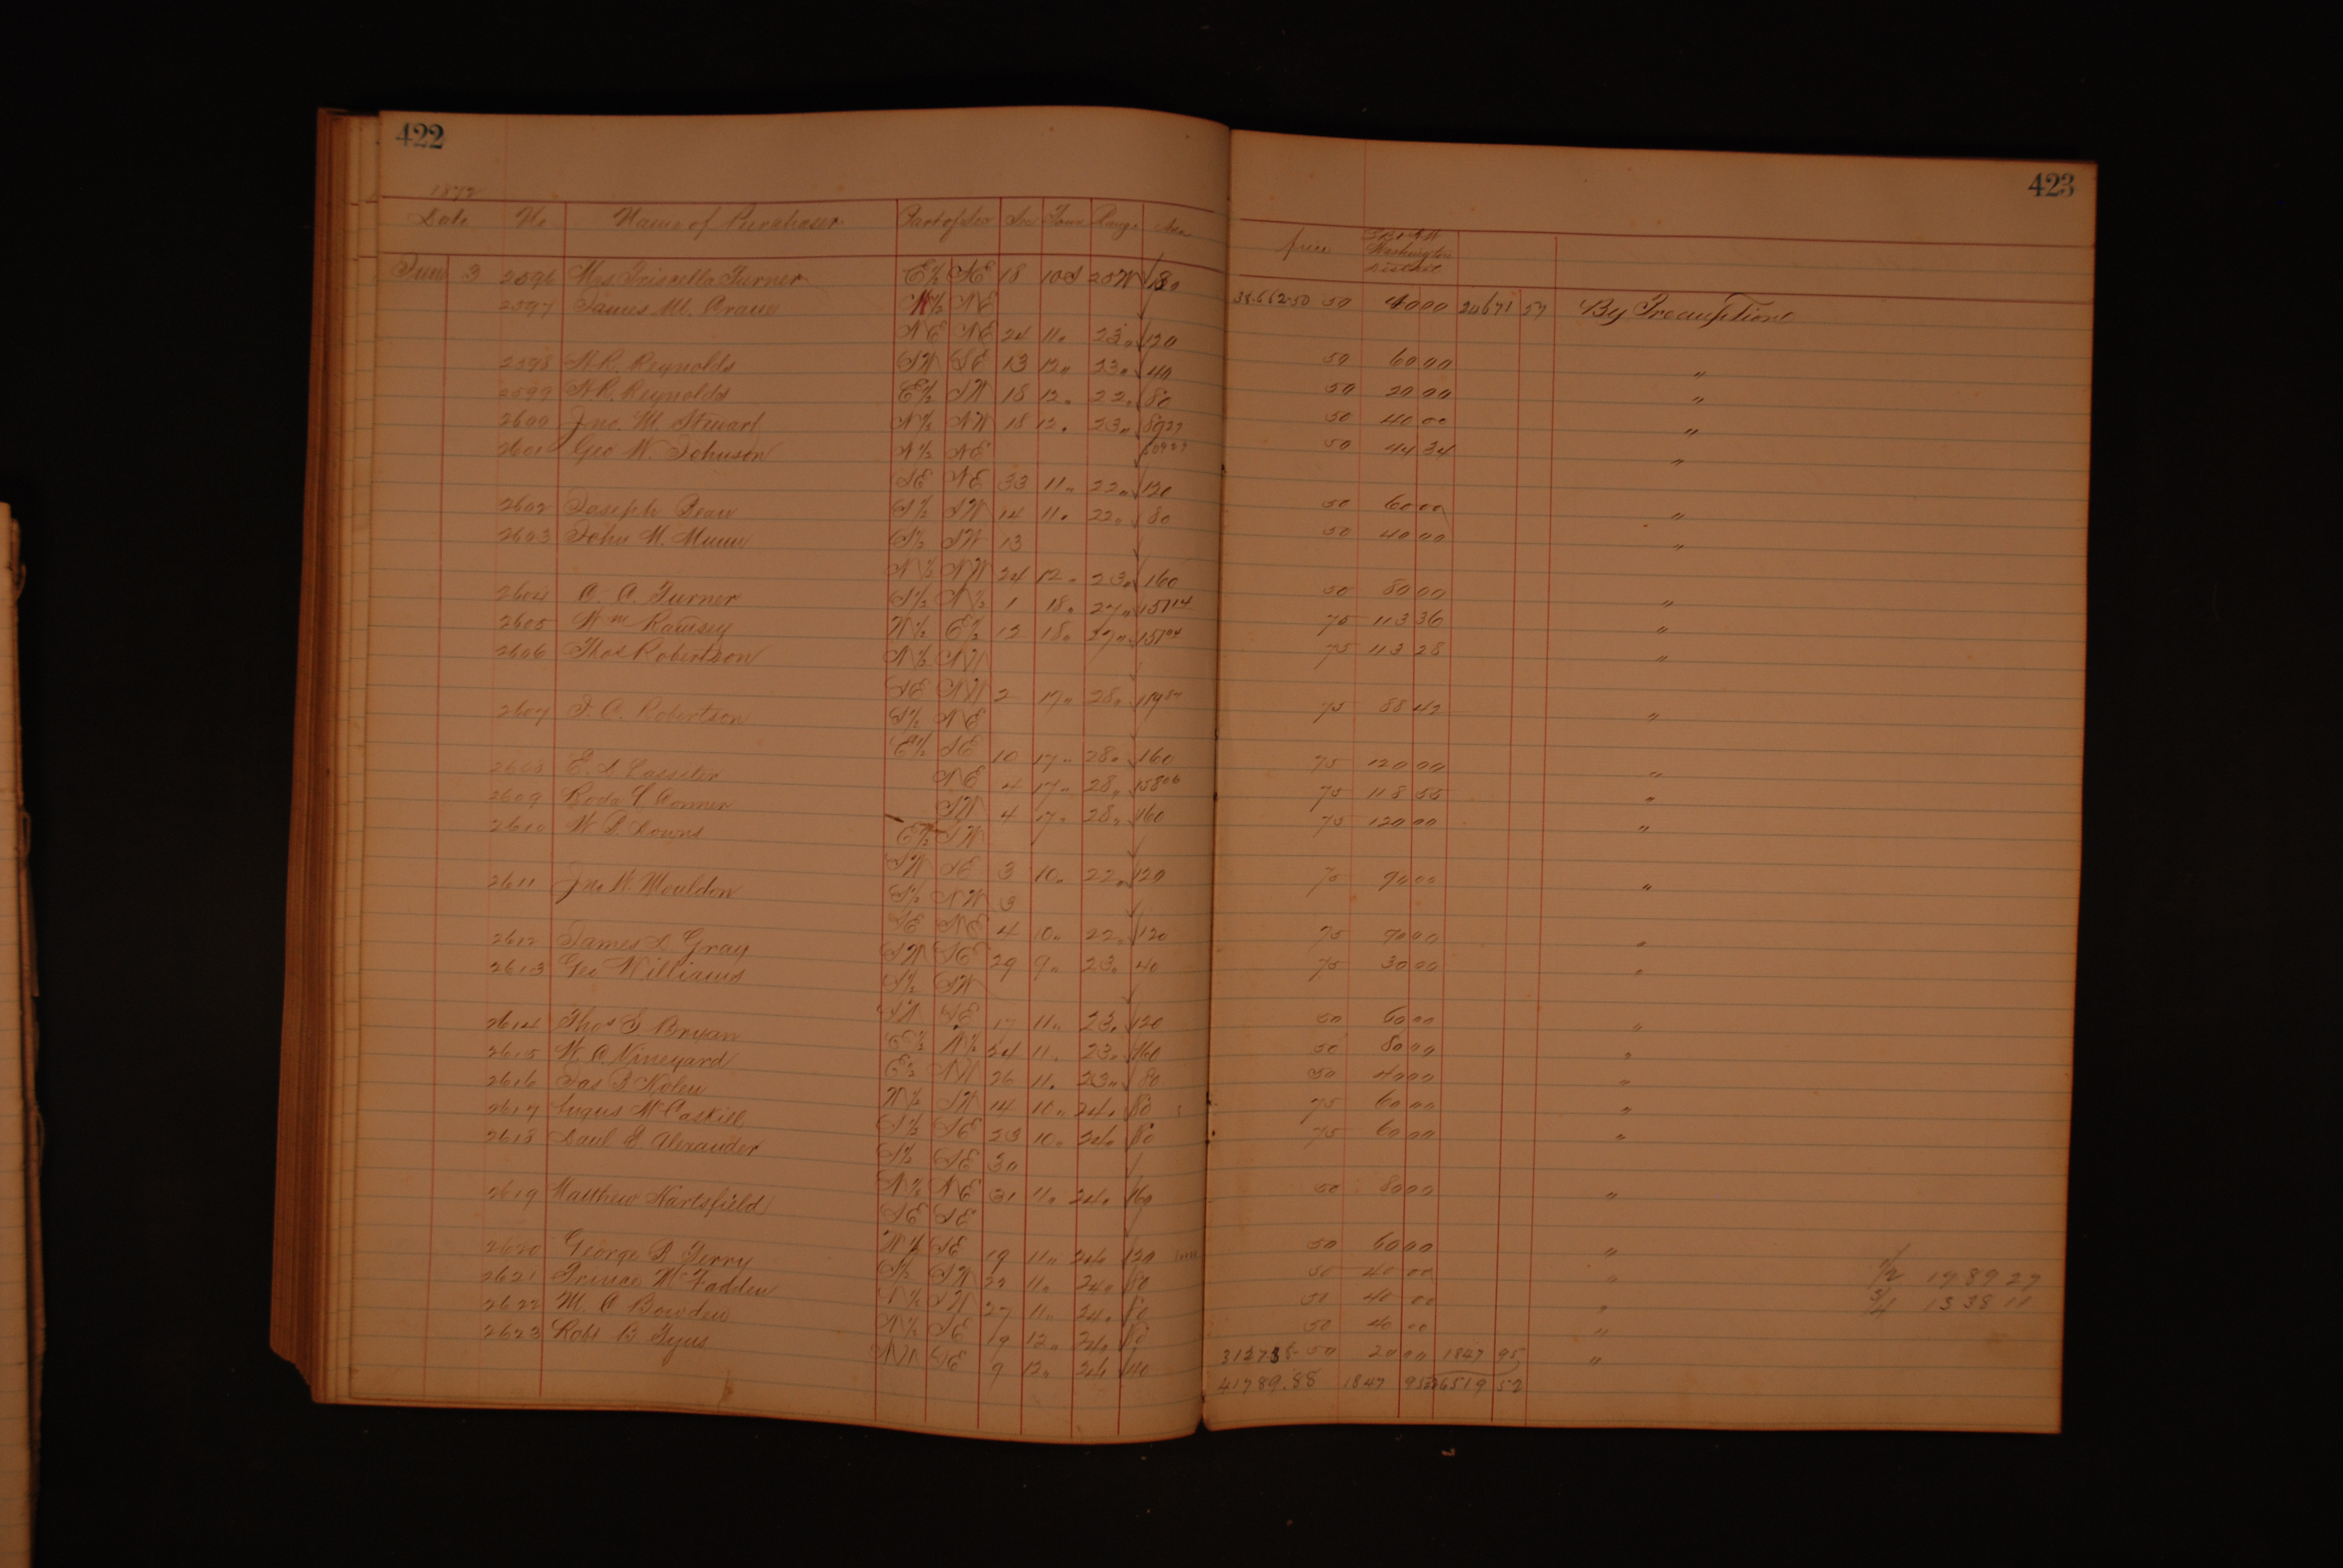 422
1872
Date No Name of Purchaser Part of Sec Sec Town Range Area
June 3 2596 Mrs Priscella Turner E½ NE 18 10S 20W 80
2597 James M. Crane W½ NE
NE NE 24 11" 23" 120
2598 N R. Reynolds SW SE 13 12" 23" 40
2599 N R. Reynolds E½ SW 18 12" 22" 80
2600 Jno. M. Stewart N½ NW 18 12" 23"
2601 Geo W. Johnson N½ NE
SE NE 33 11" 22" 120
2602 Joseph Bean S½ SW 14 11" 22" 80
2603 John M. Munn S½ SW 13
N½ NW 24 12" 23" 160
2604 A. A. Turner S½ N½ 1 18" 27" 151 14
2605 Wm Ramsey W½ E½ 12 18" 27" 151 04
2606 Thos Robertson N½ NW
SE NW 2 17" 28"
2607 F. C. Robertson S½ NE
E½ SE 10 17" 28" 160
2608 E. L Lassiter NE 4 17" 28" 158 06
2609 Roda L Conner SW 4 17" 28" 160
2610 W L. Downs E½ SW
SW SE 3 10" 22" 120
2611 Jno W. Mouldon S½ NW 3
SE NE 4 10" 22" 120
2612 James L Gray SW SE 29 9" 23" 40
2613 Geo Williams S½ SW
SW SE 17 11" 23" 120
2614 Thos E Bryan E½ W½ 34 11" 23" 160
2615 W. A Vineyard E½ NW 26 11" 23" 80
2616 Jas B Kolen W½ SW 14 10" 24" 80
2617 Angus McCaskill S½ SE 23 10" 24" 80
2618 Danl E Alexander S½ SE 30
N½ NE 31 11" 24" 160
2619 Matthew Hartsfield SE SE
W½ SE 19 11" 24" 120
2620 George B Terry S½ SW 22 11" 24" 80
2621 Prince McFadden N½ SW 27 11" 24" 80
2622 M. A Bowden N½ SE 19 12" 24" 80
2623 Robt B Tyus NW SE 9 12" 24" 40
423
price Washington District
38.662.50 50 40 00 24671 57 By Preemption
50 60 00 "
50 20 00 "
50 40 00 "
50 44 34 "
50 60 00 "
50 40 00 "
50 80 00 "
75 113 36 "
75 113 28 "
75 88 42 "
75 120 00 "
75 118 55 "
75 120 00 "
75 90 00 "
75 90 00 "
75 30 00 "
50 60 00 "
50 80 00 "
50 40 00 "
75 60 00 "
75 60 00 "
50 80 00 "
50 60 00 "
50 40 00 " ½ 1989 27
50 40 00 " ¾ 1338 11
50 40 00 "
50 20 00 1847 95 "
41789.88 1847 95 26519 52